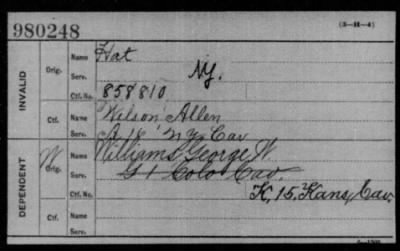 980248
(3-H-4)
INVALID
Orig.
Name Hat
Serv. NY.
Ctf. No. 858810
Ctf.
Name Wilson Allen
Serv. A 18 N.Y. Cav
DEPENDENT
W
Orig.
Name Williams George W.
Serv. G 1 Colo Cav.
Ctf. No. K, 15, Kans, Cav.
Ctf.
Name
Serv.